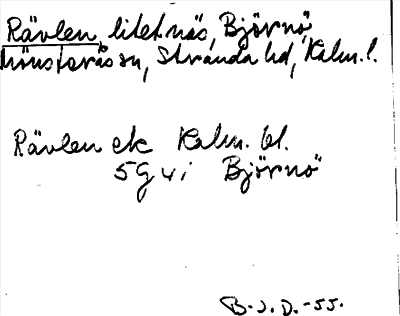 Rävlen, litet näs, Björnö,
Mönsterås sn, Stranda hd, Kalm. l.
Rävlen ek Kalm. bl.
5G4i Björnö
B.J.D.-55.